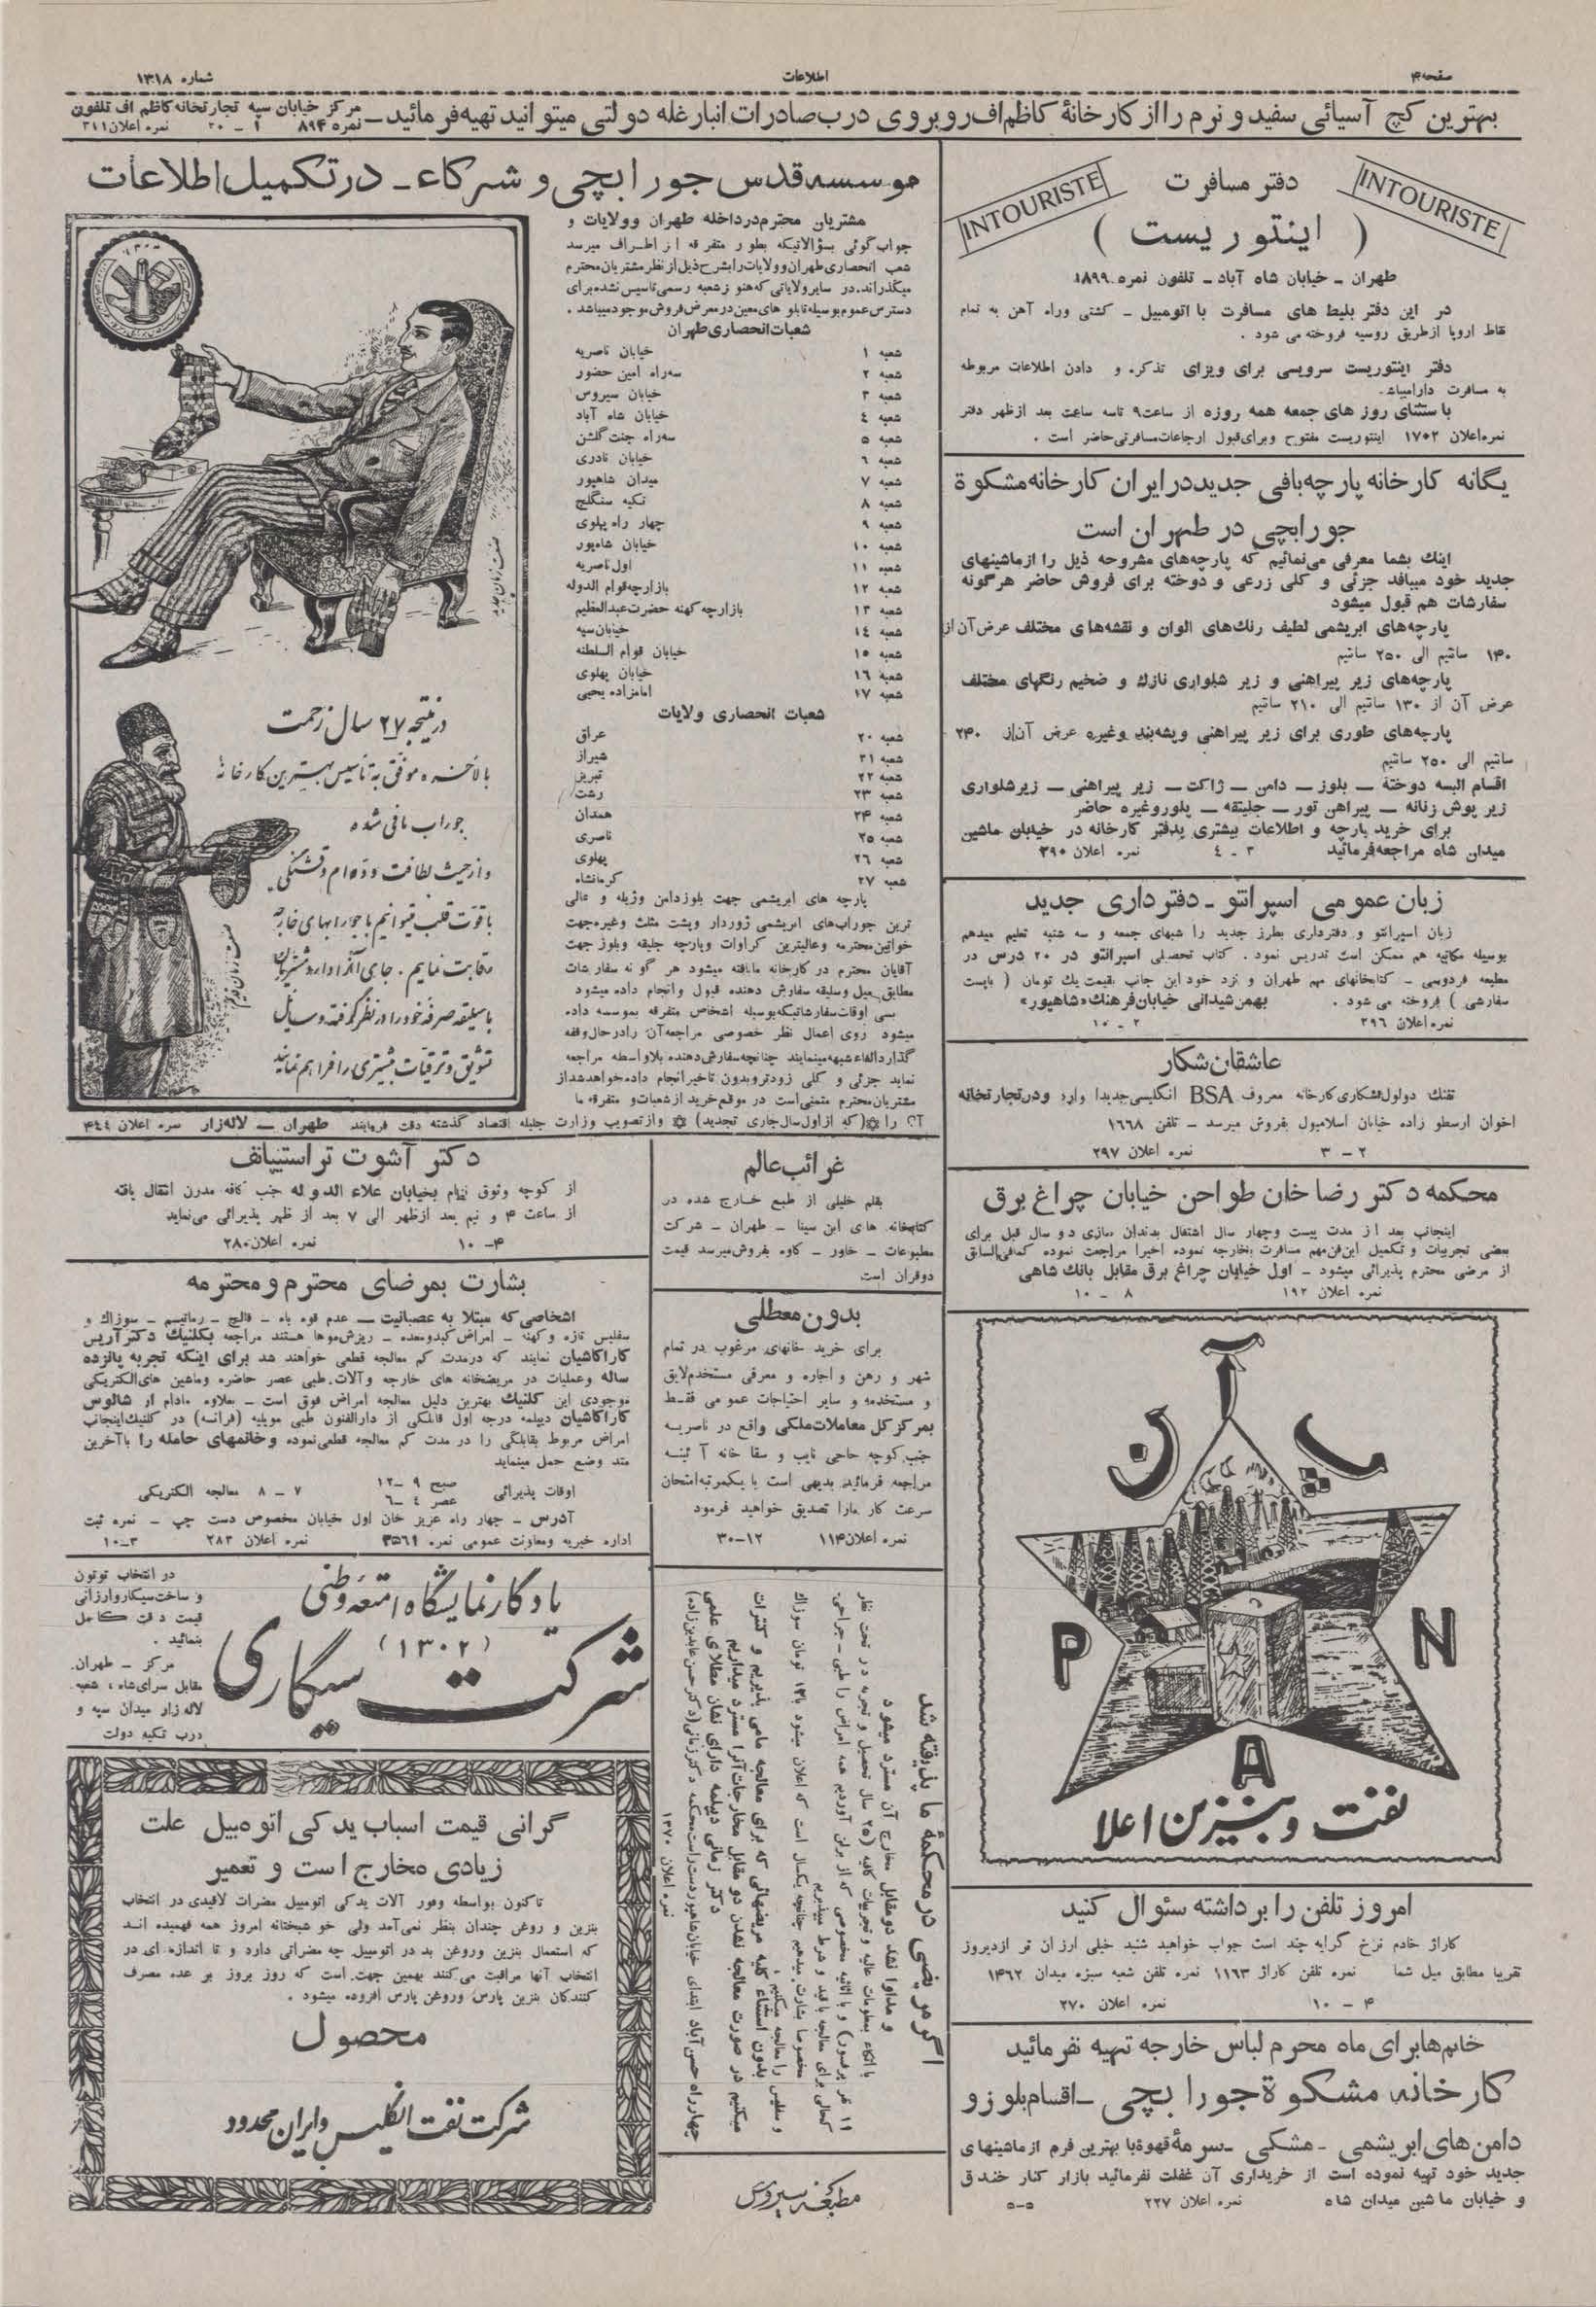 صفحه۴
اطلاعات
شماره ۱۳۱۸
بهترین گچ آسیائی سفید و نرم را از کارخانهٔ کاظم‌اف روبروی درب صادرات انبار غله دولتی میتوانید تهیه فرمائید ـ مرکز خیابان سپه تجارتخانه کاظم اف تلفون
نمره ۸۹۴ ۱ ـ ۲۰ نمره اعلان ۳۱۱
INTOURISTE
دفتر مسافرت
INTOURISTE
( اینتوریست )
طهران ـ خیابان شاه آباد ـ تلفون نمره ۱۸۹۹
در این دفتر بلیط های مسافرت با اتومبیل ـ کشتی وراه آهن به تمام
نقاط اروپا ازطریق روسیه فروخته می شود .
دفتر اینتوریست سرویسی برای ویزای تذکره و دادن اطلاعات مربوطه
به مسافرت دارامیباشد.
با ستثنای روز های جمعه همه روزه از ساعت ۹ تاسه ساعت بعد ازظهر دفتر
اینتوریست مفتوح وبرای قبول ارجاعات مسافرتی حاضر است . نمره اعلان ۱۷۰۲
یگانه کارخانه پارچه‌بافی جدید در ایران کارخانه مشکوة
جورابچی در طهران است
اینك بشما معرفی می‌نمائیم که پارچه‌های مشروحه ذیل را ازماشینهای
جدید خود میبافد جزئی و کلی زرعی و دوخته برای فروش حاضر هرگونه
سفارشات هم قبول میشود
پارچه‌های ابریشمی لطیف رنك‌های الوان و نقشه‌های مختلف عرض آن از
۱۴۰ سانتیم الی ۲۵۰ سانتیم
پارچه‌های زیر پیراهنی و زیر شلواری نازك و ضخیم رنگهای مختلف
عرض آن از ۱۳۰ سانتیم الی ۲۱۰ سانتیم
پارچه‌های طوری برای زیر پیراهنی وپشه‌بند وغیره عرض آن از ۲۴۰
سانتیم الی ۲۵۰ سانتیم
اقسام البسه دوخته ـ بلوز ـ دامن ـ ژاکت ـ زیر پیراهنی ـ زیرشلواری
زیر پوش زنانه ـ پیراهن تور ـ جلیتقه ـ پلوروغیره حاضر
برای خرید پارچه و اطلاعات بیشتری بدفتر کارخانه در خیابان ماشین
میدان شاه مراجعه فرمائید ۳ ـ ٤ نمره اعلان ۳۹۰
زبان عمومی اسپرانتو ـ دفترداری جدید
زبان اسپرانتو و دفترداری بطرز جدید را شبهای جمعه و سه شنبه تعلیم میدهم
بوسیله مکاتبه هم ممکن است تدریس نمود . کتاب تحصیلی اسپرانتو در ۲۰ درس در
مطبعه فردوسی ـ کتابخانهای مهم طهران و نزد خود این جانب بقیمت یك تومان ( باپست
سفارشی ) فروخته می شود . بهمن شیدانی خیابان فرهنك «شاهپور»
نمره اعلان ۳۹۶ ۲ ـ ۱۰
عاشقان شکار
تفنك دولول شکاری کارخانه معروف BSA انگلیسی جدیدا وارد ودرتجارتخانه
اخوان ارسطو زاده خیابان اسلامبول بفروش میرسد ـ تلفن ۱۶۶۸
۲ ـ ۳ نمره اعلان ۲۹۷
محکمه دکتر رضا خان طواحن خیابان چراغ برق
اینجانب بعد از مدت بیست وچهار سال اشتغال بدندان سازی دو سال قبل برای
بعضی تجربیات و تکمیل این فن مهم مسافرت بخارجه نموده اخیرا مراجعت نموده کمافی‌السابق
از مرضی محترم پذیرائی میشود ـ اول خیابان چراغ برق مقابل بانك شاهی
نمره اعلان ۱۹۲ ۸ ـ ۱۰
پ آ ن
P N
A
نفت و بنزین اعلا
امروز تلفن را برداشته سئوال کنید
کاراژ خادم نرخ کرایه چند است جواب خواهید شنید خیلی ارزان تر ازدیروز
تقریبا مطابق میل شما نمره تلفن کاراژ ۱۱۶۳ نمره تلفن شعبه سبزه میدان ۱۴۶۲
۴ ـ ۱۰ نمره اعلان ۲۷۰
خانم‌ها برای ماه محرم لباس خارجه تهیه نفرمائید
کارخانه مشکوة جورابچی ـ اقسام بلوز و
دامن های ابریشمی ـ مشکی ـ سرمهٔ قهوهٔ با بهترین فرم ازماشینهای
جدید خود تهیه نموده است از خریداری آن غفلت نفرمائید بازار کنار خندق
و خیابان ماشین میدان شاه نمره اعلان ۲۲۷ ۵ـ۵
موسسه قدس جورابچی و شرکاء ـ در تکمیل اطلاعات
مشتریان محترم در داخله طهران وولایات و
جواب گوئی بسؤالاتیکه بطور متفرقه از اطراف میرسد
شعب انحصاری طهران وولایات را بشرح ذیل از نظر مشتریان محترم
میگذراند. در سایر ولایاتی که هنوز شعبه رسمی تاسیس نشده برای
دسترس عموم بوسیله تابلو های معین در معرض فروش موجود میباشد .
شعبات انحصاری طهران
شعبه ۱ خیابان ناصریه
شعبه ۲ سه‌راه امین حضور
شعبه ۳ خیابان سیروس
شعبه ٤ خیابان شاه آباد
شعبه ۵ سه‌راه جنت گلشن
شعبه ٦ خیابان نادری
شعبه ۷ میدان شاهپور
شعبه ۸ تکیه سنگلج
شعبه ۹ چهار راه پهلوی
شعبه ۱۰ خیابان شاهپور
شعبه ۱۱ اول ناصریه
شعبه ۱۲ بازارچه قوام الدوله
شعبه ۱۳ بازارچه کهنه حضرت عبدالعظیم
شعبه ۱٤ خیابان سپه
شعبه ۱۵ خیابان قوام السلطنه
شعبه ۱٦ خیابان پهلوی
شعبه ۱۷ امامزاده یحیی
شعبات انحصاری ولایات
شعبه ۲۰ عراق
شعبه ۲۱ شیراز
شعبه ۲۲ تبریز
شعبه ۲۳ رشت
شعبه ۲۴ همدان
شعبه ۲۵ ناصری
شعبه ۲٦ پهلوی
شعبه ۲۷ کرمانشاه
پارچه های ابریشمی جهت بلوز دامن وژیله و عالی
ترین جوراب‌های ابریشمی زوردار وپشت مثلث وغیره جهت
خواتین محترمه وعالیترین کراوات وپارچه جلیقه وبلوز جهت
آقایان محترم در کارخانه ما بافته میشود هر گونه سفارشات
مطابق میل وسلیقه سفارش دهنده قبول وانجام داده میشود
بسی اوقات سفارشاتیکه بوسیله اشخاص متفرقه بموسسه داده
میشود روی اعمال نظر خصوصی مراجعه آن را درحال وقفه
گذارد القاء شبهه مینمایند چنانچه سفارش دهنده بلاواسطه مراجعه
نماید جزئی و کلی زودتر و بدون تاخیر انجام داده خواهد شد از
مشتریان محترم متمنی است در موقع خرید از شعبات و متفرقه ما
را (که از اول سال جاری تجدید) و از تصویب وزارت جلیله اقتصاد گذشته دقت فرمایند طهران ـ لاله‌زار نمره اعلان ۴٤٤
صنعت زمان جدید
در نتیجه ۲۷ سال زحمت
بالاخره موفق به تأسیس بهترین کارخانهٔ
جوراب بافی شده
و از حیث لطافت و دوام و قشنگی
با قوت قلب میتوانیم با جورابهای خارجه
رقابت نمایم . جای آنرا دارد مشتریان
با سلیقه صرفه خود را در نظر گرفته وسایل
تشویق و ترقیات بیشتری را فراهم نمایند
صنعت زمان قدیم
غرائب عالم
بقلم خلیلی از طبع خارج شده در
کتابخانه های ابن سینا ـ طهران ـ شرکت
مطبوعات ـ خاور ـ کاوه بفروش میرسد قیمت
دوقران است
بدون معطلی
برای خرید خانهای مرغوب در تمام
شهر و رهن و اجاره و معرفی مستخدم لایق
و مستخدمه و سایر احتیاجات عمومی فقط
بمرکز کل معاملات ملکی واقع در ناصریه
جنب کوچه حاجی نایب و سقا خانه آئینه
مراجعه فرمائید بدیهی است با یکمرتبه امتحان
سرعت کار مارا تصدیق خواهید فرمود
نمره اعلان ۱۱۴ ۱۲ـ۳۰
اگر مریضی در محکمهٔ ما پذیرفته شد
و مداوا نشد دو مقابل مخارج آن مسترد میشود
با اتکاء بمعلومات عالیه و تجربیات کافیه (۲۵ سال تحصیل و تجربه در تحت نظر
۱۱ نفر پرفسور) و با اثاثیه مخصوصی که از برلن آوردیم همه امراض را طبی ـ جراحی.
کحالی برای معالجه با قید و شرط میپذیریم
مخصوصا بشارت میدهیم چنانچه یکسال است که اعلان میشود با ۱۳ تومان سوزاك
و سفلیس را معالجه میکنیم ،
بدون استثناء کلیه مریضهائی که برای معالجه مامی پذیریم و کنترات
میکنیم در صورت معالجه نشدن دو مقابل مخارجات آنرا مسترد میداریم
دکتر زمانی دیپلمه دارای نشان مطلای علمی
چهارراه حسن آباد ابتدای خیابان شاهپور دست راست محکمه دکتر زمانی (دکتر حسن عابدین‌زاده)
نمره اعلان ۱۳۷۰
مطبعه سیروس
دکتر آشوت تراستپانف
از کوچه وثوق نظام بخیابان علاء الدوله جنب کافه مدرن انتقال یافته
از ساعت ۴ و نیم بعد ازظهر الی ۷ بعد از ظهر پذیرائی می‌نماید
۴ـ ۱۰ نمره اعلان ۲۸۰
بشارت بمرضای محترم و محترمه
اشخاصی که مبتلا به عصبانیت ـ عدم قوه باه ـ فالج ـ رماتیسم ـ سوزاك و
سفلیس تازه وکهنه ـ امراض کبدومعده ـ ریزش موها هستند مراجعه بکلنیك دکتر آریس
کاراکاشیان نمایند که درمدت کم معالجه قطعی خواهند شد برای اینکه تجربه پانزده
ساله وعملیات در مریضخانه های خارجه وآلات طبی عصر حاضره وماشین های الکتریکی
موجودی این کلنیك بهترین دلیل معالجه امراض فوق است ـ بعلاوه مادام آر شالوس
کاراکاشیان دیپلمه درجه اول قابلگی از دارالفنون طبی مونپلیه (فرانسه) در کلنیك اینجانب
امراض مربوط بقابلگی را در مدت کم معالجه قطعی نموده و خانمهای حامله را باآخرین
متد وضع حمل مینماید
اوقات پذیرائی صبح ۹ ـ۱۲ عصر ٤ ـ٦ ۷ ـ ۸ معالجه الکتریکی
آدرس ـ چهار راه عزیز خان اول خیابان مخصوص دست چپ ـ نمره ثبت
اداره خیریه ومعاونت عمومی نمره ۳۵٦۱ نمره اعلان ۲۸۳ ۳ـ۱۰
یادگار نمایشگاه امتعه وطنی
(۱۳۰۲)
شرکت سیگاری
در انتخاب توتون
و ساخت سیگاروارزانی
قیمت دقت کامل
بنمائید .
مرکز ـ طهران.
مقابل سرای شاه ، شعبه
لاله زار میدان سپه و
درب تکیه دولت
گرانی قیمت اسباب یدکی اتومبیل علت
زیادی مخارج است و تعمیر
تاکنون بواسطه وفور آلات یدکی اتومبیل مضرات لاقیدی در انتخاب
بنزین و روغن چندان بنظر نمی‌آمد ولی خوشبختانه امروز همه فهمیده اند
که استعمال بنزین وروغن بد در اتومبیل چه مضراتی دارد و تا اندازه ای در
انتخاب آنها مراقبت می‌کنند بهمین جهت است که روز بروز بر عده مصرف
کنندکان بنزین پارس وروغن پارس افزوده میشود .
محصول
شرکت نفت انگلیس و ایران محدود